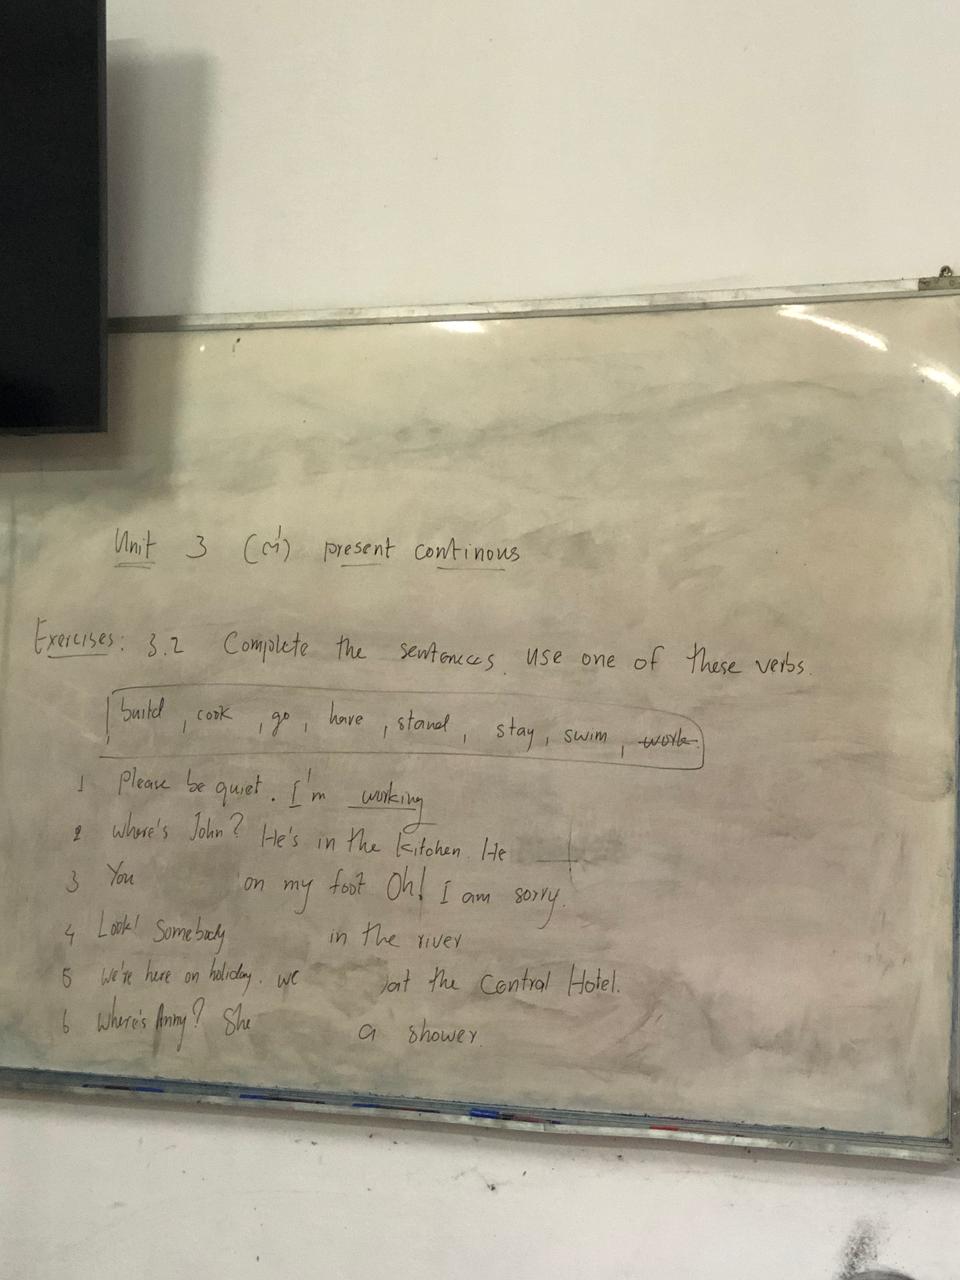 Unit 3 present continous
Exercises: 3.2 Complete the sentences. use one of these verbs.
build, cook, go, have, stand, stay, swim, work.
1 Please be quiet. I'm working
2 Where's John? He's in the kitchen. He
3 You on my foot Oh! I am sorry.
4 Look! Somebody in the river
5 We're here on holiday. we at the Central Hotel.
6 Where's Anny? She a shower.